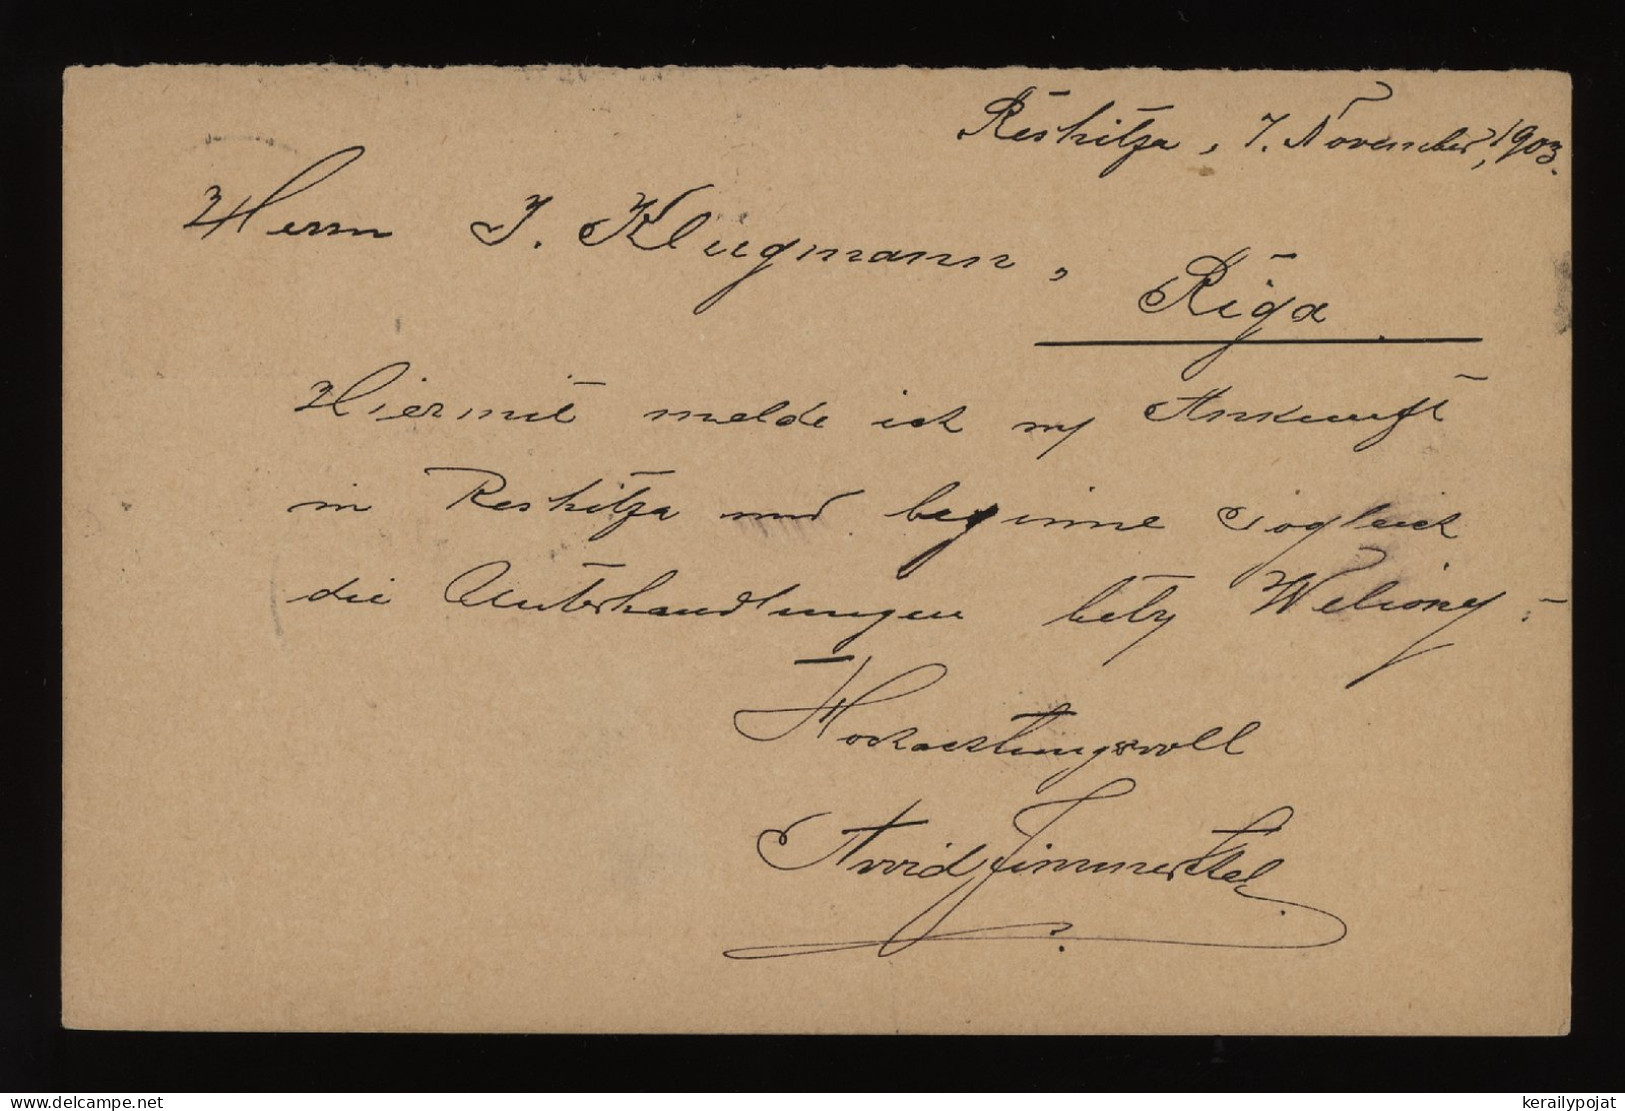 Reshitza, 7. November, 1903.
Herrn J. Kliegmann,
Riga
Hiermit melde ich m/ Ankunft
in Reshitza und beginne sogleich
die Unterhandlungen betr
Hochachtungsvoll
Arvid
www.delcampe.net
kerailypojat